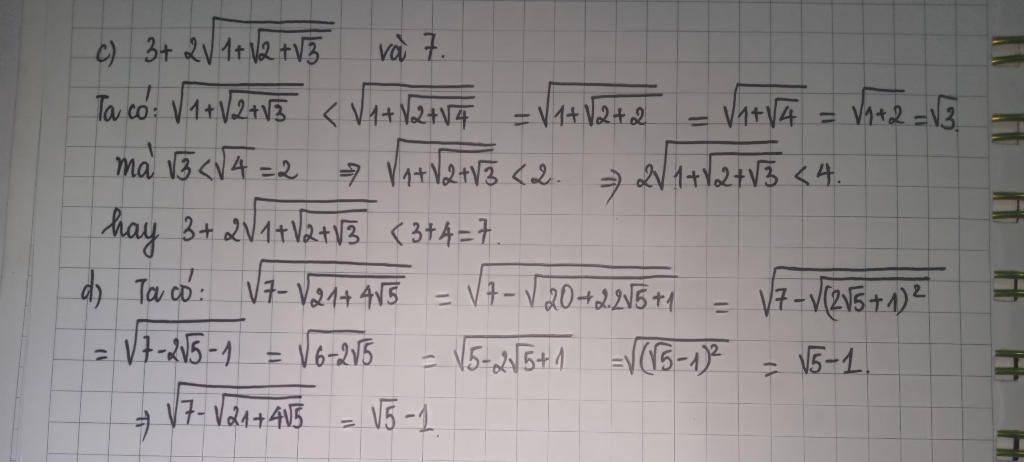 c) 3+ 2√(1+√(2+√3)) và 7.
Ta có: √(1+√(2+√3)) < √(1+√(2+√4)) = √(1+√(2+2)) = √(1+√4) = √(1+2) = √3.
mà √3 < √4 = 2 ⇒ √(1+√(2+√3)) < 2. ⇒ 2√(1+√(2+√3)) < 4.
hay 3+ 2√(1+√(2+√3)) < 3+4=7.
d) Ta có: √(7-√(21+4√5)) = √(7-√(20+2.2√5+1)) = √(7-√((2√5+1)²))
= √(7-2√5-1) = √(6-2√5) = √(5-2√5+1) = √((√5-1)²) = √5-1.
⇒ √(7-√(21+4√5)) = √5-1.